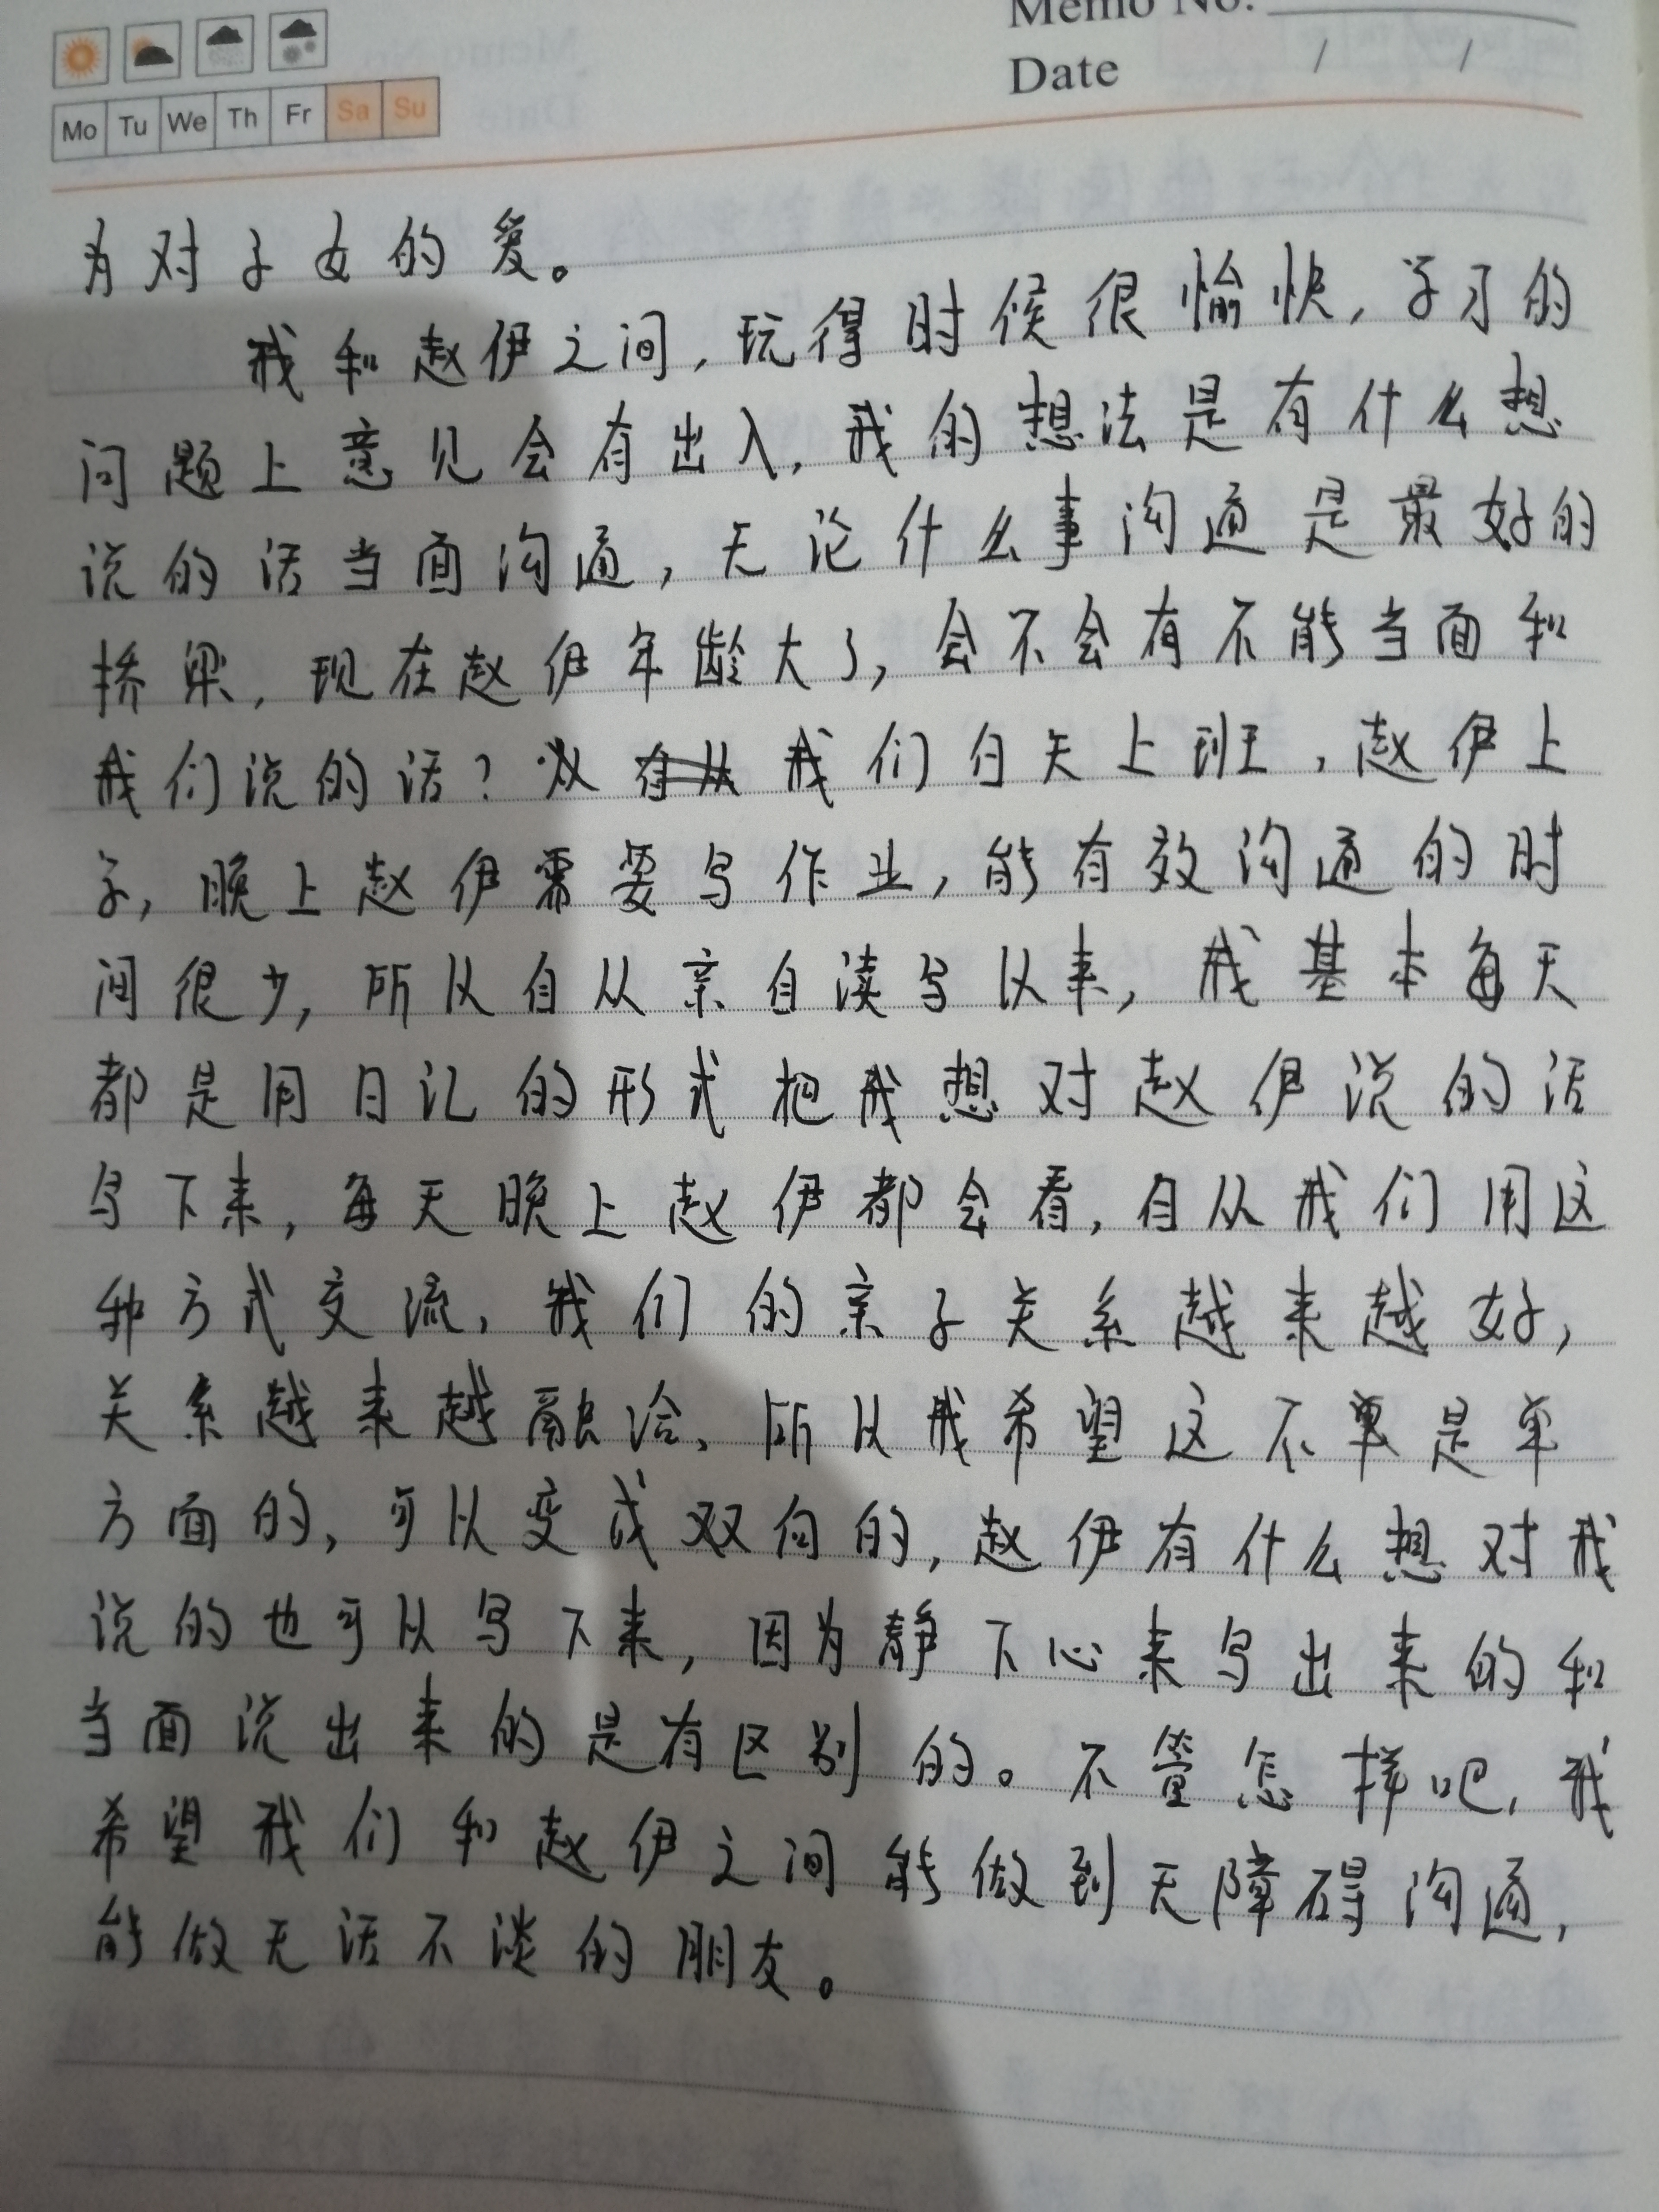 Memo No.
Date / /
Mo Tu We Th Fr Sa Su
为对子女的爱。
我和赵伊之间,玩得时候很愉快,学习的
问题上意见会有出入,我的想法是有什么想
说的话当面沟通,无论什么事沟通是最好的
桥梁,现在赵伊年龄大了,会不会有不能当面和
我们说的话?双 我们白天上班,赵伊上
学,晚上赵伊需要写作业,能有效沟通的时
间很少,所以自从亲自读写以来,我基本每天
都是用日记的形式把我想对赵伊说的话
写下来,每天晚上赵伊都会看,自从我们用这
种方式交流,我们的亲子关系越来越好,
关系越来越融洽、所以我希望这不单是单
方面的,可以变成双向的,赵伊有什么想对我
说的也可以写下来,因为静下心来写出来的和
当面说出来的是有区别的。不管怎样吧,我
希望我们和赵伊之间能做到无障碍沟通,
能做无话不谈的朋友。